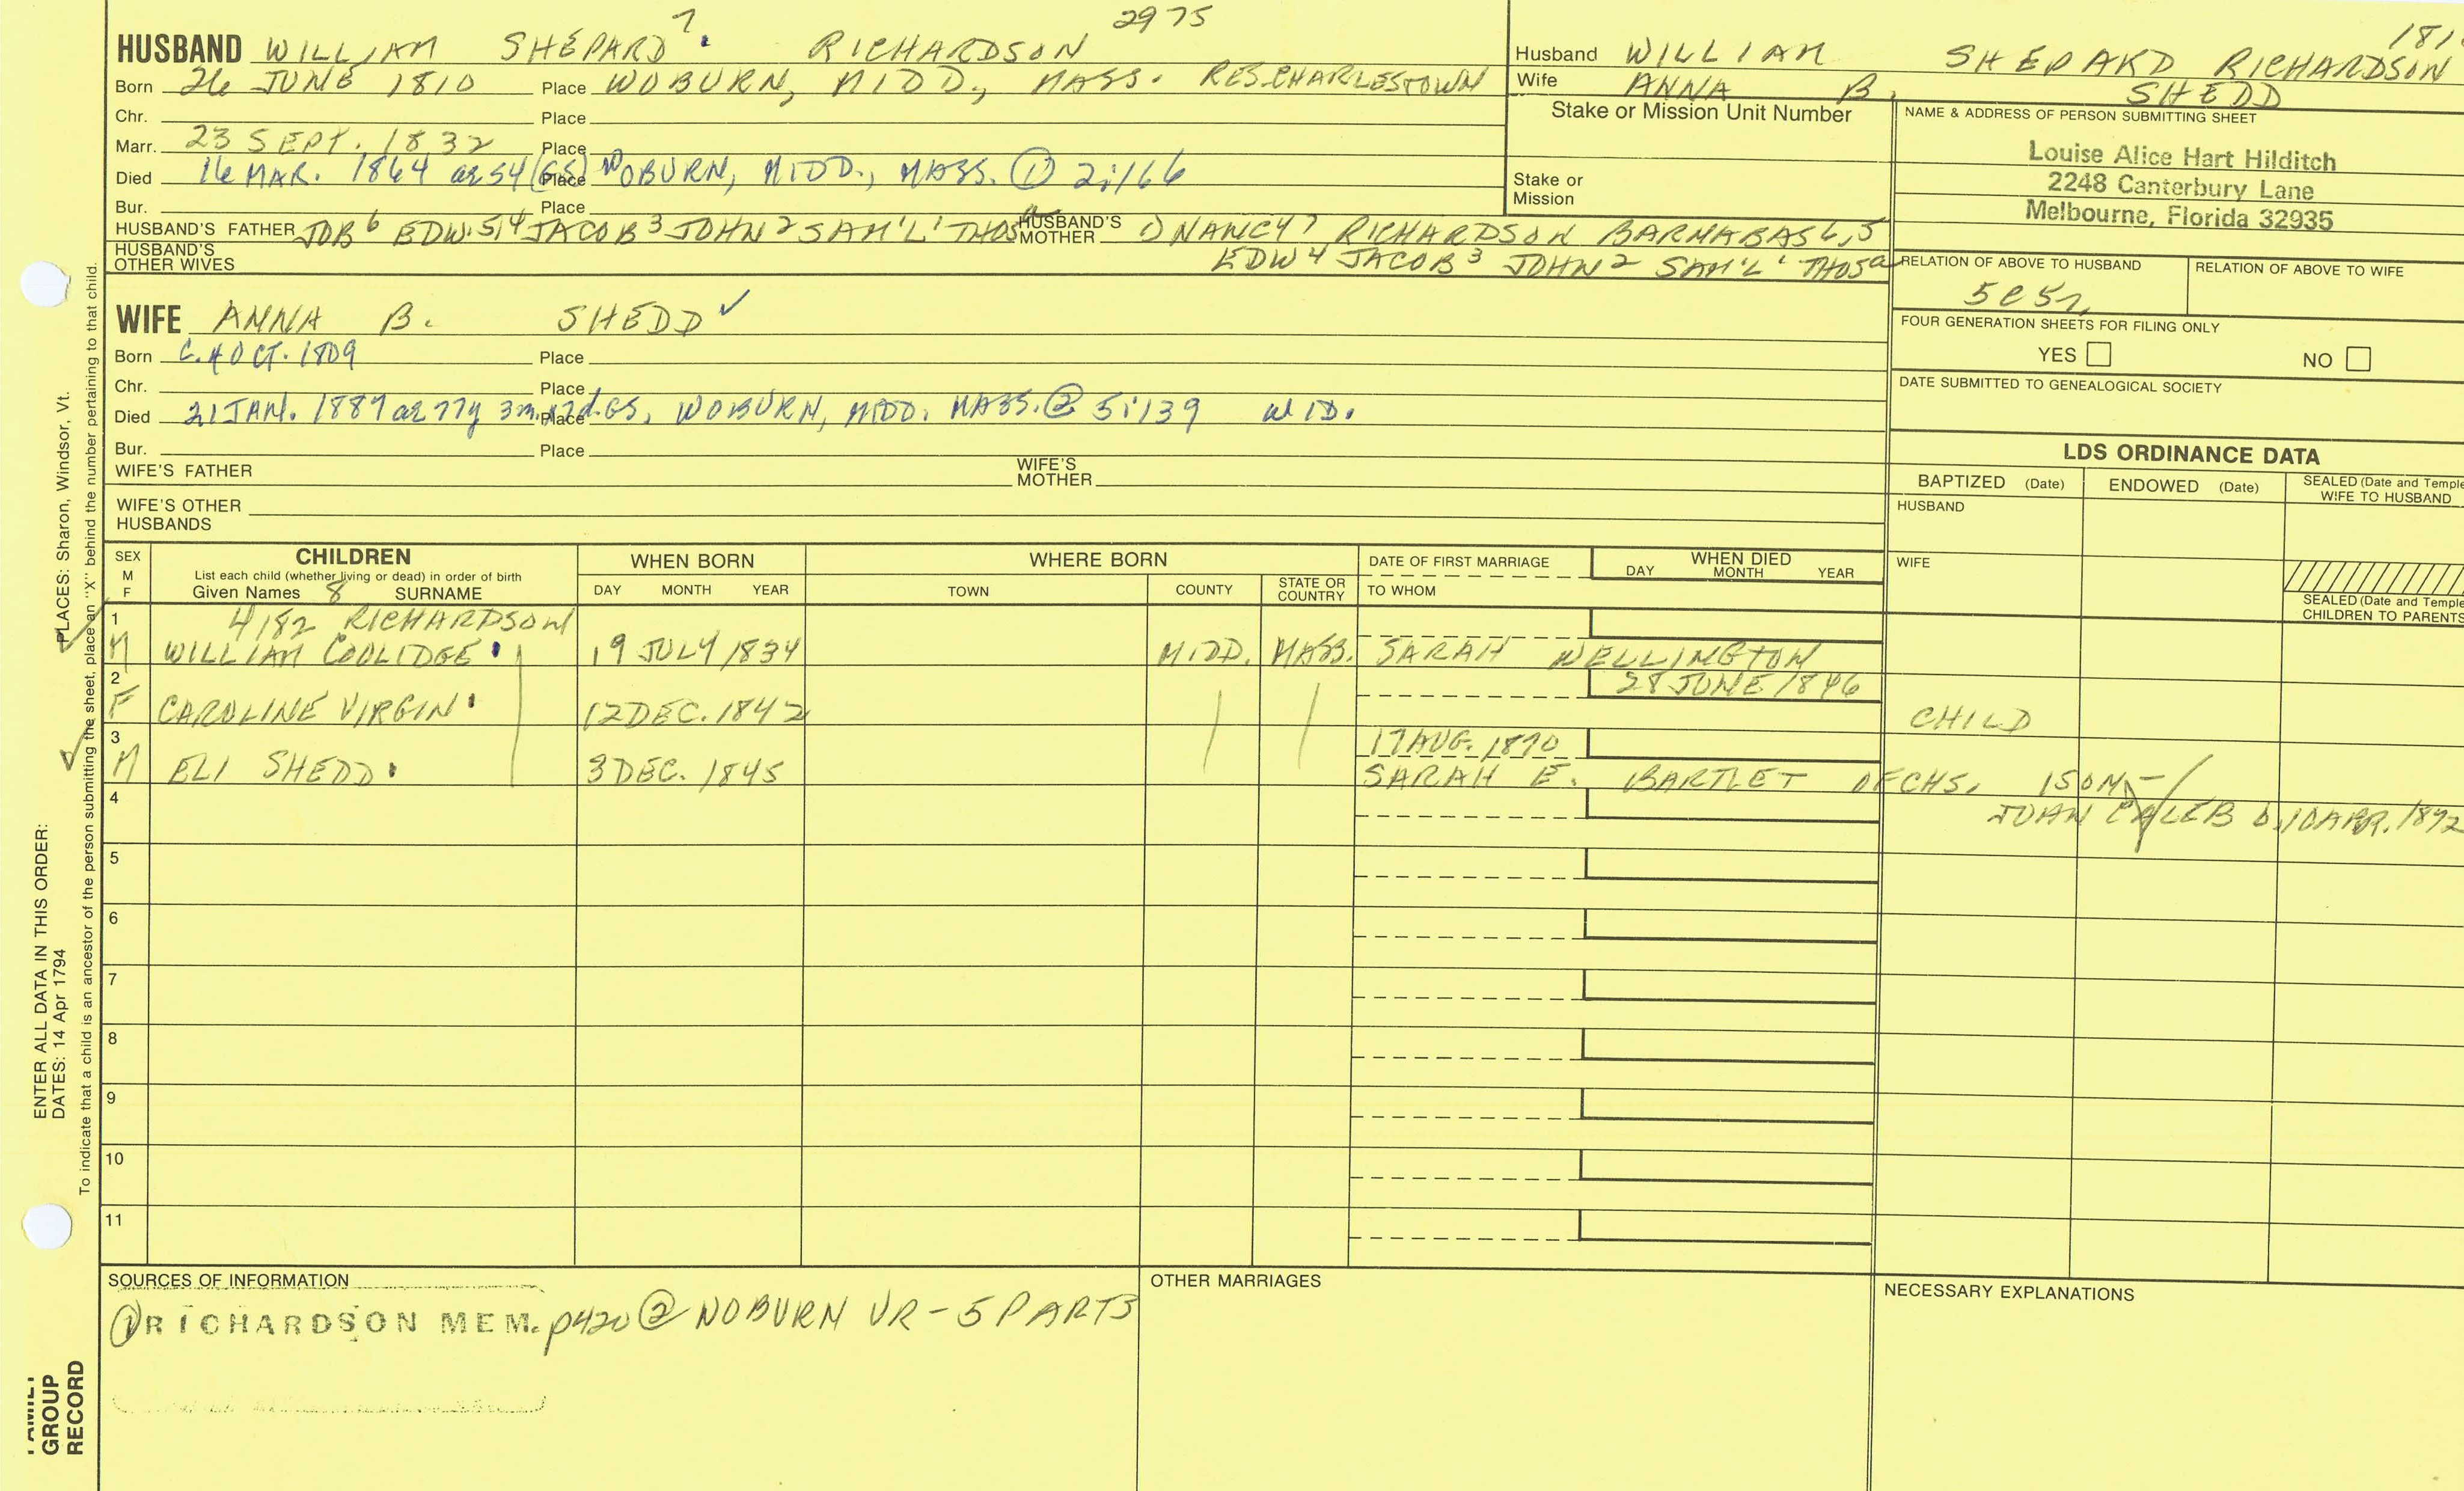 7 2975 181
HUSBAND WILLIAM SHEPARD RICHARDSON
Born 26 JUNE 1810 Place WOBURN, MIDD., MASS. RES. CHARLESTOWN
Chr. Place
Marr. 23 SEPT. 1832 Place
Died 16 MAR. 1864 ae 54 (GS) Place WOBURN, MIDD., MASS. ① 2:166
Bur. Place
HUSBAND'S FATHER JOB 6 EDW. 5,4 JACOB 3 JOHN 2 SAM'L 1 THOS a HUSBAND'S MOTHER 1) NANCY 7 RICHARDSON BARNABAS 6,5
HUSBAND'S OTHER WIVES EDW 4 JACOB 3 JOHN 2 SAM'L 1 THOS a
Husband WILLIAM SHEPARD RICHARDSON
Wife ANNA B. SHEDD
Stake or Mission Unit Number
Stake or
Mission
NAME & ADDRESS OF PERSON SUBMITTING SHEET
Louise Alice Hart Hilditch
2248 Canterbury Lane
Melbourne, Florida 32935
RELATION OF ABOVE TO HUSBAND RELATION OF ABOVE TO WIFE
5C5R
FOUR GENERATION SHEETS FOR FILING ONLY
YES NO
DATE SUBMITTED TO GENEALOGICAL SOCIETY
WIFE ANNA B. SHEDD ✓
Born C. 4 OCT. 1809 Place
Chr. Place
Died 21 JAN. 1887 ae 77y 3m. 17d. GS, Place WOBURN, MIDD. MASS. ② 5:139 WID.
Bur. Place
WIFE'S FATHER WIFE'S MOTHER
WIFE'S OTHER HUSBANDS
LDS ORDINANCE DATA
BAPTIZED (Date) ENDOWED (Date) SEALED (Date and Temple
WIFE TO HUSBAND
HUSBAND
WIFE
SEALED (Date and Temple
CHILDREN TO PARENTS
SEX M F CHILDREN WHEN BORN WHERE BORN DATE OF FIRST MARRIAGE WHEN DIED
List each child (whether living or dead) in order of birth
Given Names 8 SURNAME DAY MONTH YEAR TOWN COUNTY STATE OR COUNTRY TO WHOM DAY MONTH YEAR
1 4182 RICHARDSON
M WILLIAM COOLIDGE 19 JULY 1834 MIDD. MASS. SARAH WELLINGTON
2 28 JUNE 1846
F CAROLINE VIRGIN 12 DEC. 1842 CHILD
3 17 AUG. 1870
M ELI SHEDD 3 DEC. 1845 SARAH E. BARTLET OF CHS. 1 SON,-
4 JOHN CALEB b. 10 APR. 1872
5
6
7
8
9
10
11
SOURCES OF INFORMATION
① RICHARDSON MEM. p420 ② WOBURN VR - 5 PARTS
OTHER MARRIAGES
NECESSARY EXPLANATIONS
ENTER ALL DATA IN THIS ORDER:
DATES: 14 Apr 1794
PLACES: Sharon, Windsor, Vt.
To indicate that a child is an ancestor of the person submitting the sheet, place an "X" behind the number pertaining to that child.
FAMILY
GROUP
RECORD